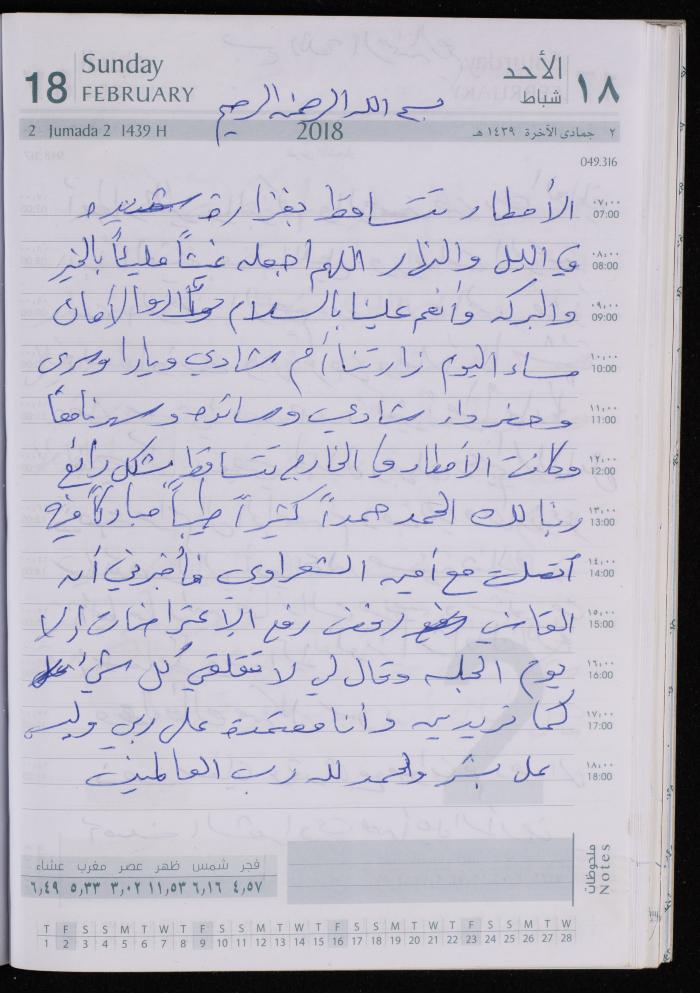 18
Sunday
FEBRUARY
الأحد
شباط
١٨
بسم الله الرحمن الرحيم
2 Jumada 2 1439 H
2018
٢ جمادى الآخرة ١٤٣٩ هـ
049.316
الأمطار تتساقط بغزارة شديده
٠٧:٠٠
07:00
في الليل والنهار اللهم اجعله غيثاً مليئاً بالخير
٠٨:٠٠
08:00
والبركه وأنعم علينا بالسلام والأمان
٠٩:٠٠
09:00
مساء اليوم زارتنا أم شادي ويارا وسرى
١٠:٠٠
10:00
وحضر دار شادي وسائده وسهرنا معاً
١١:٠٠
11:00
وكانت الأمطار في الخارج تتساقط بشكل رائع
١٢:٠٠
12:00
ربنا لك الحمد حمداً كثيراً طيباً مباركاً فيه
١٣:٠٠
13:00
أتصلت مع أمين الشعراوي فأخبرني أن
١٤:٠٠
14:00
القاضي رفض رفع الإعتراضات إلا
١٥:٠٠
15:00
يوم الجلسه وقال لي لا تقلقي كل شيء
١٦:٠٠
16:00
كما تريدين وأنا معتمدة على ربي وليس
١٧:٠٠
17:00
على بشر والحمد لله رب العالمين
١٨:٠٠
18:00
فجر شمس ظهر عصر مغرب عشاء
٤,٥٧ ٦,١٦ ١١,٥٣ ٣,٠٢ ٥,٣٣ ٦,٤٩
ملحوظات
Notes
T F S S M T W T F S S M T W T F S S M T W T F S S M T W
1 2 3 4 5 6 7 8 9 10 11 12 13 14 15 16 17 18 19 20 21 22 23 24 25 26 27 28